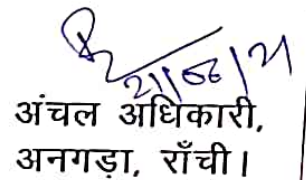 21/06/21
अंचल अधिकारी,
अनगड़ा, राँची।